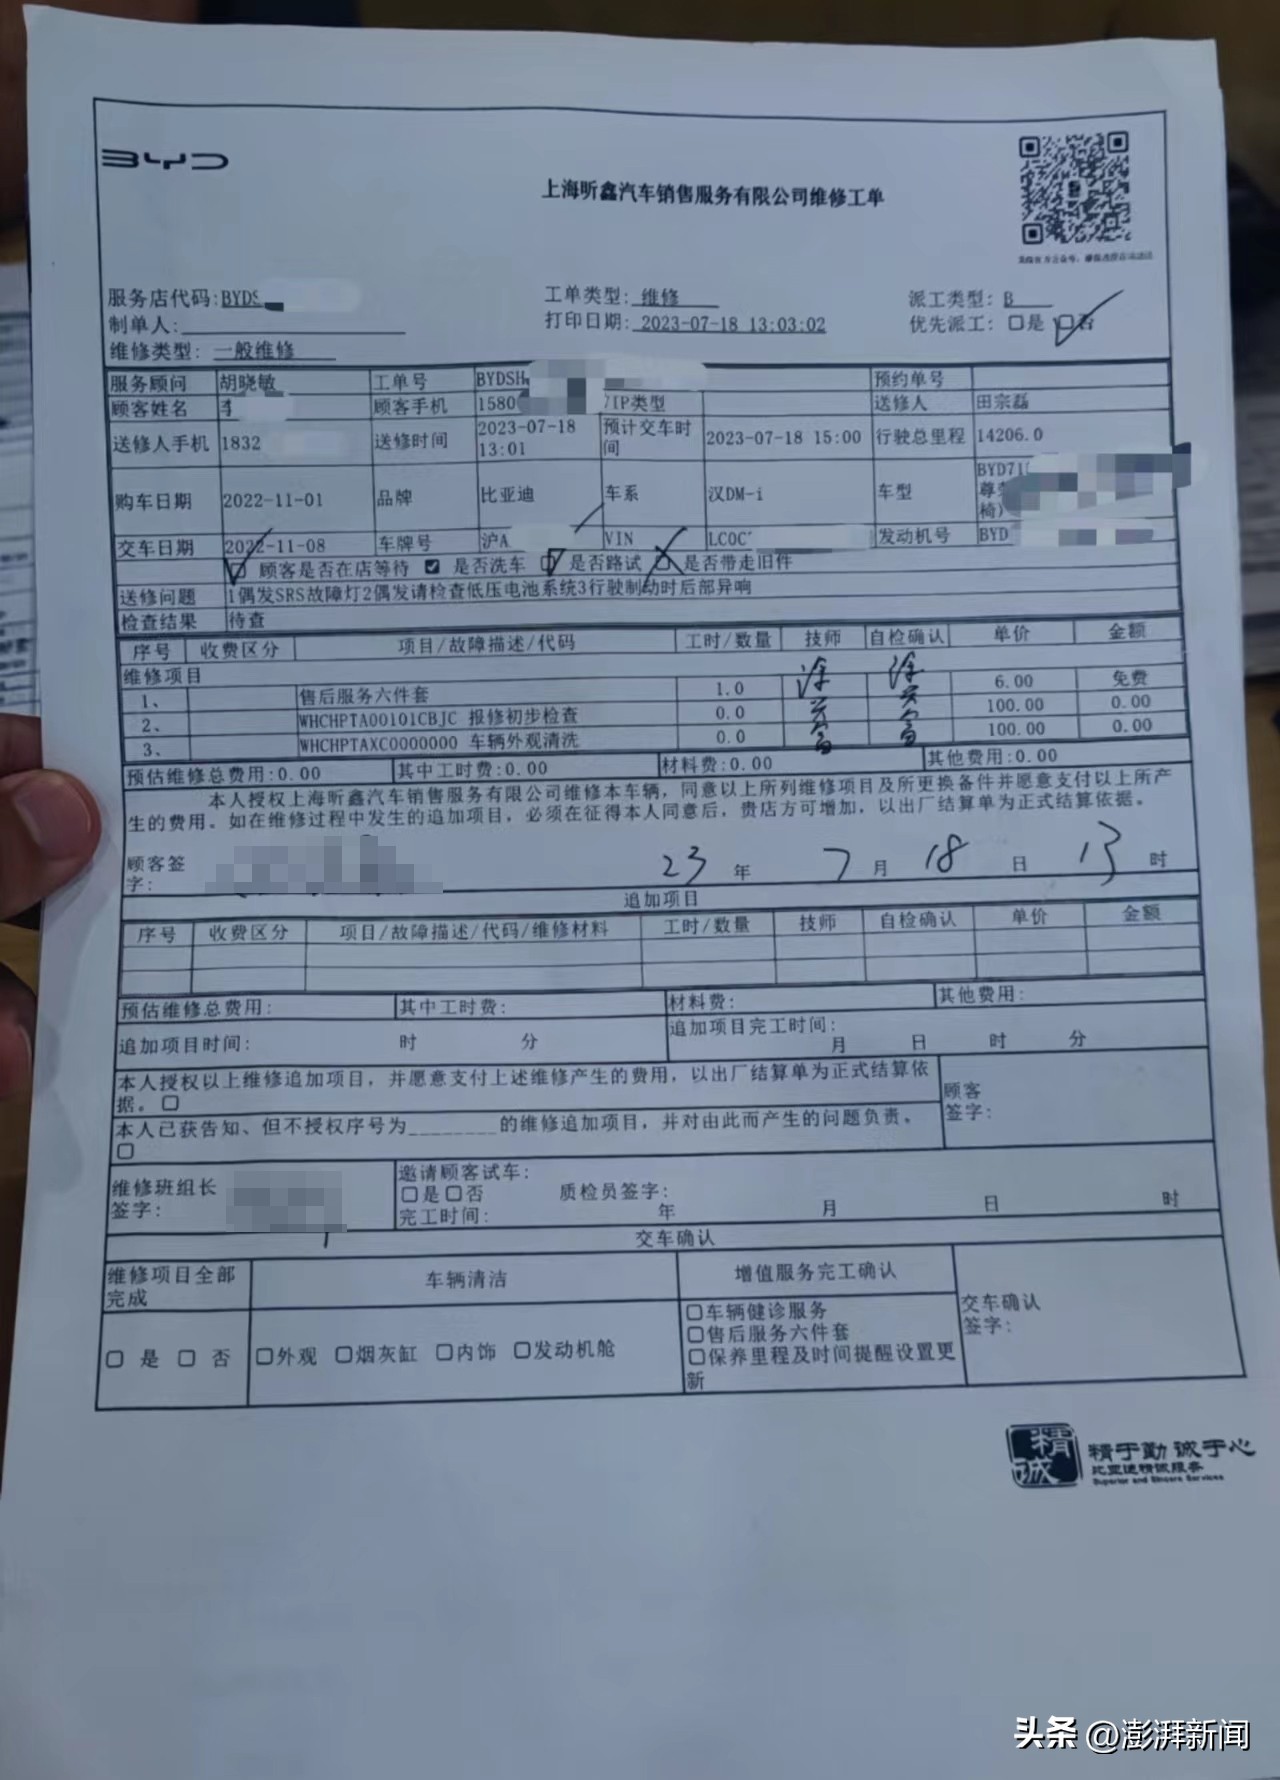 BYD
上海昕鑫汽车销售服务有限公司维修工单
服务店代码:BYDS
工单类型: 维修
派工类型: B
制单人:
打印日期: 2023-07-18 13:03:02
优先派工: 是 否
维修类型: 一般维修
服务顾问 胡晓敏 工单号 BYDSH 预约单号
顾客姓名 李 顾客手机 1580 VIP类型 送修人 田宗磊
送修人手机 1832 送修时间 2023-07-18 13:01 预计交车时间 2023-07-18 15:00 行驶总里程 14206.0
购车日期 2022-11-01 品牌 比亚迪 车系 汉DM-i 车型 BYD71 尊 椅)
交车日期 2022-11-08 车牌号 沪A VIN LC0C 发动机号 BYD
顾客是否在店等待 是否洗车 是否路试 是否带走旧件
送修问题 1偶发SRS故障灯2偶发请检查低压电池系统3行驶制动时后部异响
检查结果 待查
序号 收费区分 项目/故障描述/代码 工时/数量 技师 自检确认 单价 金额
维修项目
1、 售后服务六件套 1.0 6.00 免费
2、 WHCHPTA00101CBJC 报修初步检查 0.0 100.00 0.00
3、 WHCHPTAXC0000000 车辆外观清洗 0.0 100.00 0.00
预估维修总费用:0.00 其中工时费:0.00 材料费:0.00 其他费用:0.00
本人授权上海昕鑫汽车销售服务有限公司维修本车辆，同意以上所列维修项目及所更换备件并愿意支付以上所产
生的费用。如在维修过程中发生的追加项目，必须在征得本人同意后，贵店方可增加，以出厂结算单为正式结算依据。
顾客签字: 23 年 7 月 18 日 13 时
追加项目
序号 收费区分 项目/故障描述/代码/维修材料 工时/数量 技师 自检确认 单价 金额
预估维修总费用: 其中工时费: 材料费: 其他费用:
追加项目时间: 时 分 追加项目完工时间: 月 日 时 分
本人授权以上维修追加项目，并愿意支付上述维修产生的费用，以出厂结算单为正式结算依
据。
顾客签字:
本人已获告知、但不授权序号为________的维修追加项目，并对由此而产生的问题负责。
维修班组长签字:
邀请顾客试车:
是 否 质检员签字:
完工时间: 年 月 日 时
交车确认
维修项目全部完成 车辆清洁 增值服务完工确认 交车确认签字:
是 否 外观 烟灰缸 内饰 发动机舱
车辆健诊服务
售后服务六件套
保养里程及时间提醒设置更新
精诚
精于勤 诚于心
比亚迪精诚服务
Superior and Sincere Services
头条 @澎湃新闻